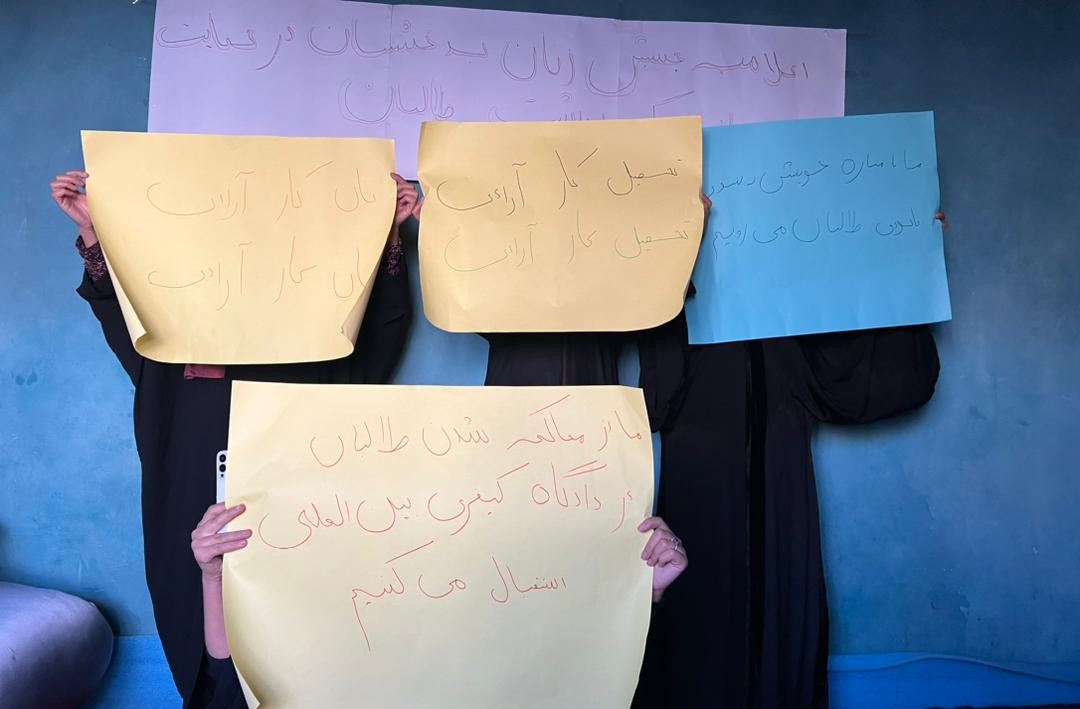 اعلامیه جنبش زنان بدخشان در حمایت
طالبان
نان کار آزادی
نان کار آزادی
تحصیل کار آزادی
تحصیل کار آزادی
ما با مبارزه خویش
طالبان می رویم
ما از محاکمه شدن طالبان
از دادگاه کیفری بین المللی
استقبال می کنیم